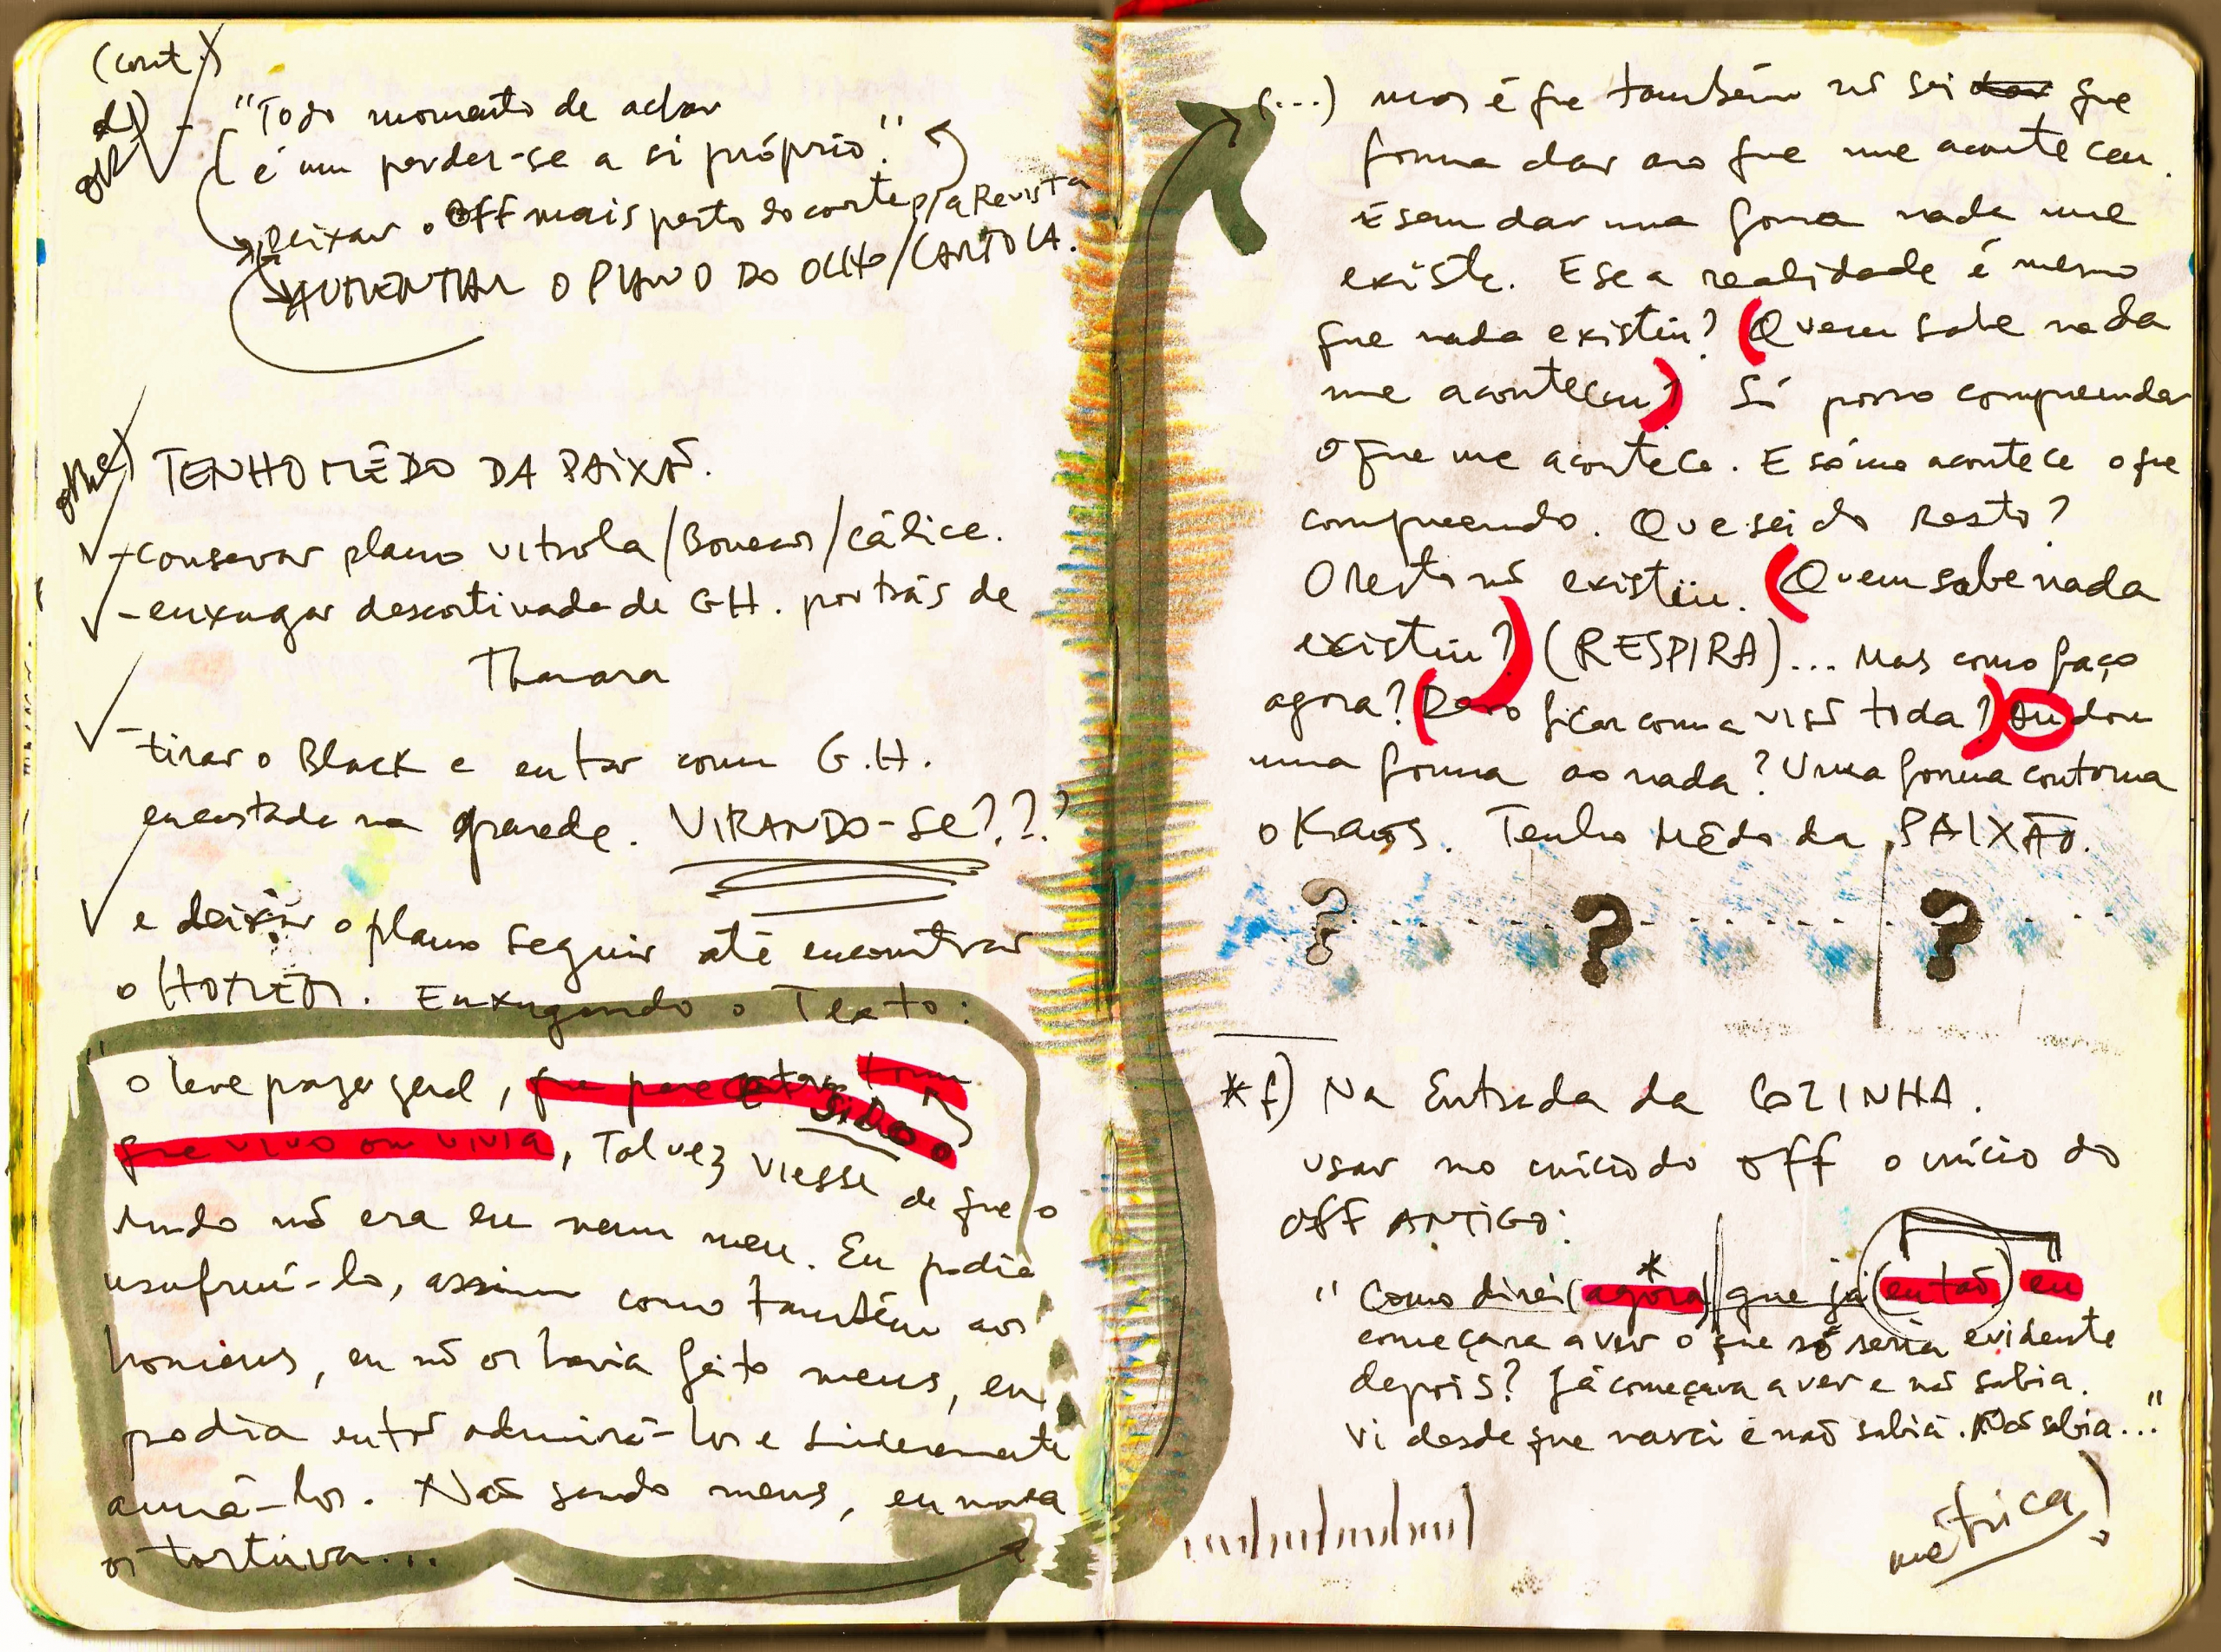 (cont.)
d) - "Todo momento de achar
OK é um perder-se a si próprio."
Deixar o OFF mais perto do corte p/a Revista
AUMENTAR O PLANO DO OLHO/CARTOLA.
OK e) TENHO MÊDO DA PAIXÃO.
- conservar plano vitrola/Bonecos/cálice.
- enxugar descortinada de GH. por trás de
Thamara
- tirar o Black e entrar com G.H.
encostada na parede. VIRANDO-SE???
e deixar o plano seguir até encontrar
o HOMEM. Enxugando o Texto:
"o leve prazer geral, que parece
SIDO o
que vivo ou vivia, Talvez viesse de que o
mundo nõ era eu nem meu. Eu podia
usufruí-lo, assim como também aos
homens, eu nõ os havia feito meus, eu
podia então admirá-los e sinceramente
amá-los. Não sendo meus, eu nunca
os torturava...
(...) mas é que também nõ sei dar que
forma dar ao que me aconteceu.
E sem dar uma forma nada me
existe. E se a realidade é mesmo
que nada existiu? (Quem sabe nada
me aconteceu?) Só posso compreender
o que me acontece. E só me acontece o que
compreendo. Que sei do Resto?
O resto nõ existiu. (Quem sabe nada
existiu?) (RESPIRA)... Mas como faço
agora? (Devo ficar com a visõ toda?) Ou dou
uma forma ao nada? Uma forma contorna
o Kaos. Tenho Mêdo da PAIXÃO.
? ? ?
* f) Na Entrada da COZINHA.
usar no início do off o início do
OFF ANTIGO:
*
" Como direi (agora) que já (então) eu
começara a ver o que só seria evidente
depois? Já começava a ver e não sabia.
Vi desde que nasci e não sabia. Não sabia..."
métrica!